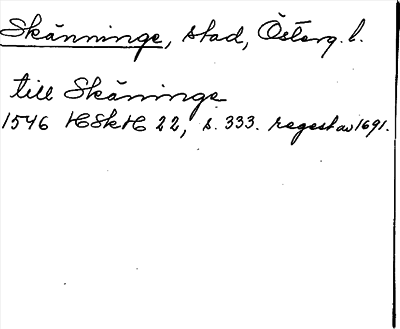 Skänninge, stad, Österg. l.
till Skäninge
1546 HSkH 22, s. 333. regest av 1691.